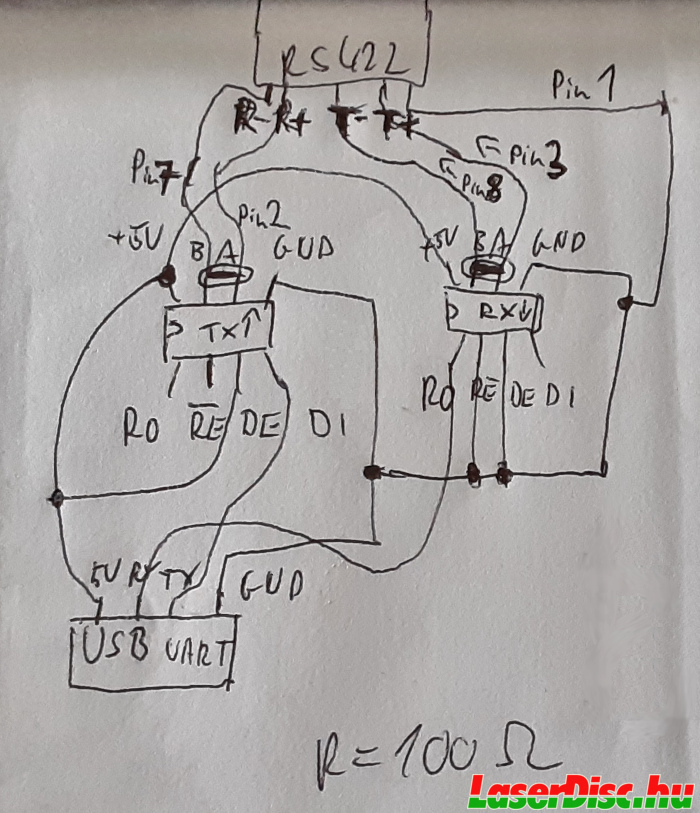 RS422
Pin1
R- R+ T- T+
Pin7
Pin3
Pin8
Pin2
+5V B A GND
+5V B A GND
TX↑
RX↓
RO RE DE DI
RO RE DE DI
5V RX TX GND
USB UART
R=100Ω
LaserDisc.hu